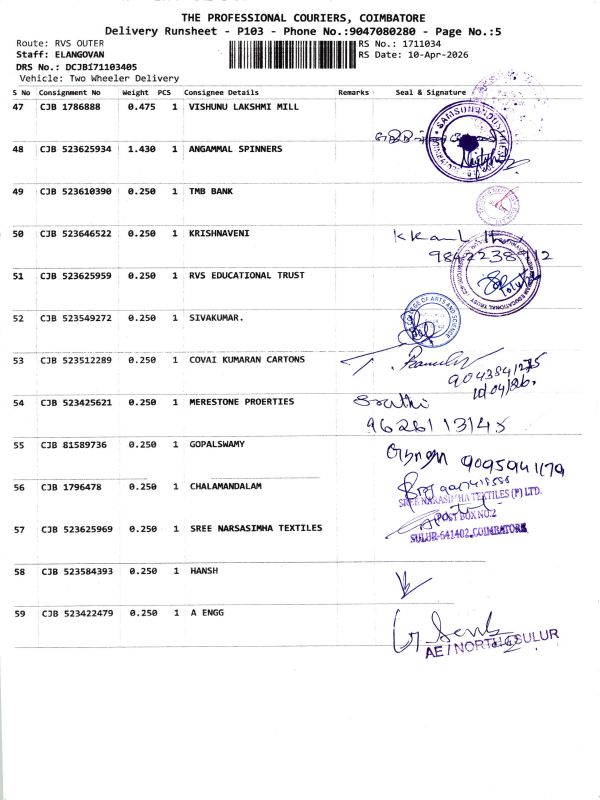 THE PROFESSIONAL COURIERS, COIMBATORE
Delivery Runsheet - P103 - Phone No.:9047080280 - Page No.:5
Route: RVS OUTER
RS No.: 1711034
Staff: ELANGOVAN
RS Date: 10-Apr-2026
DRS No.: DCJBI71103405
Vehicle: Two Wheeler Delivery
S No Consignment No Weight PCS Consignee Details Remarks Seal & Signature
47 CJB 1786888 0.475 1 VISHUNU LAKSHMI MILL
48 CJB 523625934 1.430 1 ANGAMMAL SPINNERS
49 CJB 523610390 0.250 1 TMB BANK
50 CJB 523646522 0.250 1 KRISHNAVENI
51 CJB 523625959 0.250 1 RVS EDUCATIONAL TRUST
52 CJB 523549272 0.250 1 SIVAKUMAR.
53 CJB 523512289 0.250 1 COVAI KUMARAN CARTONS
10/04/26.
54 CJB 523425621 0.250 1 MERESTONE PROERTIES
9626113145
55 CJB 81589736 0.250 1 GOPALSWAMY
9095941179
56 CJB 1796478 0.250 1 CHALAMANDALAM
SREE NARASIMHA TEXTILES (P) LTD.
POST BOX NO.2
57 CJB 523625969 0.250 1 SREE NARSASIMHA TEXTILES
SULUR-641402, COIMBATORE
58 CJB 523584393 0.250 1 HANSH
59 CJB 523422479 0.250 1 A ENGG
AE / NORTH / SULUR